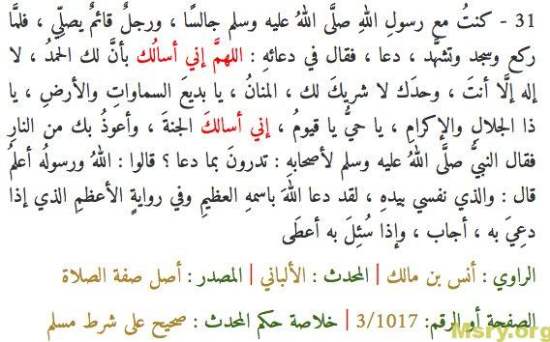 31 - كنتُ مع رسولِ اللهِ صلَّى اللهُ عليه وسلم جالسًا ، ورجلٌ قائمٌ يصلِّي ، فلمَّا
ركع وسجد وتشهَّد ، دعا ، فقال في دعائهِ : اللهمَّ إني أسألُك بأنَّ لك الحمدُ ، لا
إله إلَّا أنتَ ، وحدَك لا شريكَ لك ، المنانُ ، يا بديعَ السماواتِ والأرضِ ، يا
ذا الجلالِ والإكرامِ ، يا حيُّ يا قيومُ ، إني أسالكَ الجنةَ ، وأعوذُ بك من النارِ
فقال النبيُّ صلَّى اللهُ عليه وسلم لأصحابهِ : تدرونَ بما دعا ؟ قالوا : اللهُ ورسولُه أعلمُ
قال : والذي نفسي بيدهِ ، لقد دعا اللهَ باسمهِ العظيمِ وفي روايةٍ الأعظمِ الذي إذا
دعِيَ به ، أجاب ، وإذا سُئِلَ به أعطَى
الراوي : أنس بن مالك | المحدث : الألباني | المصدر : أصل صفة الصلاة
الصفحة أو الرقم: 3/1017 | خلاصة حكم المحدث : صحيح على شرط مسلم
Msry.org